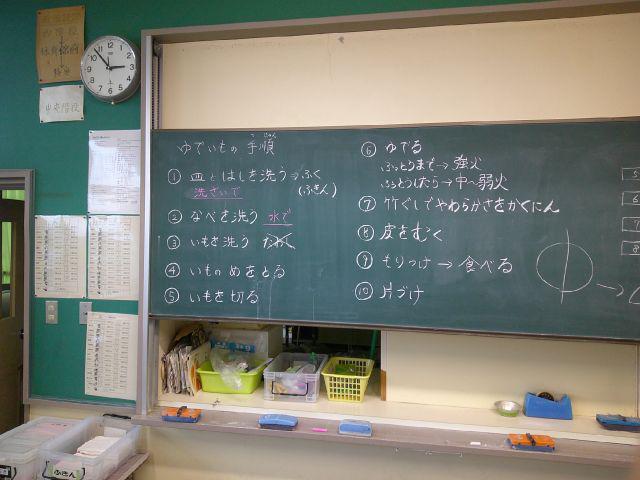 ゆでいもの 手順
じゅん
① 皿とはしを洗う→ふく
洗ざいで
(ふきん)
② なべを洗う 水で
③ いもを洗う
④ いものめをとる
⑤ いもを切る
⑥ ゆでる
ふっとうまで→強火
ふっとうしたら→中〜弱火
⑦ 竹ぐしでやわらかさをかくにん
⑧ 皮をむく
⑨ もりつけ→食べる
⑩ 片づけ
5
6
7
8
中央階段
ふきん